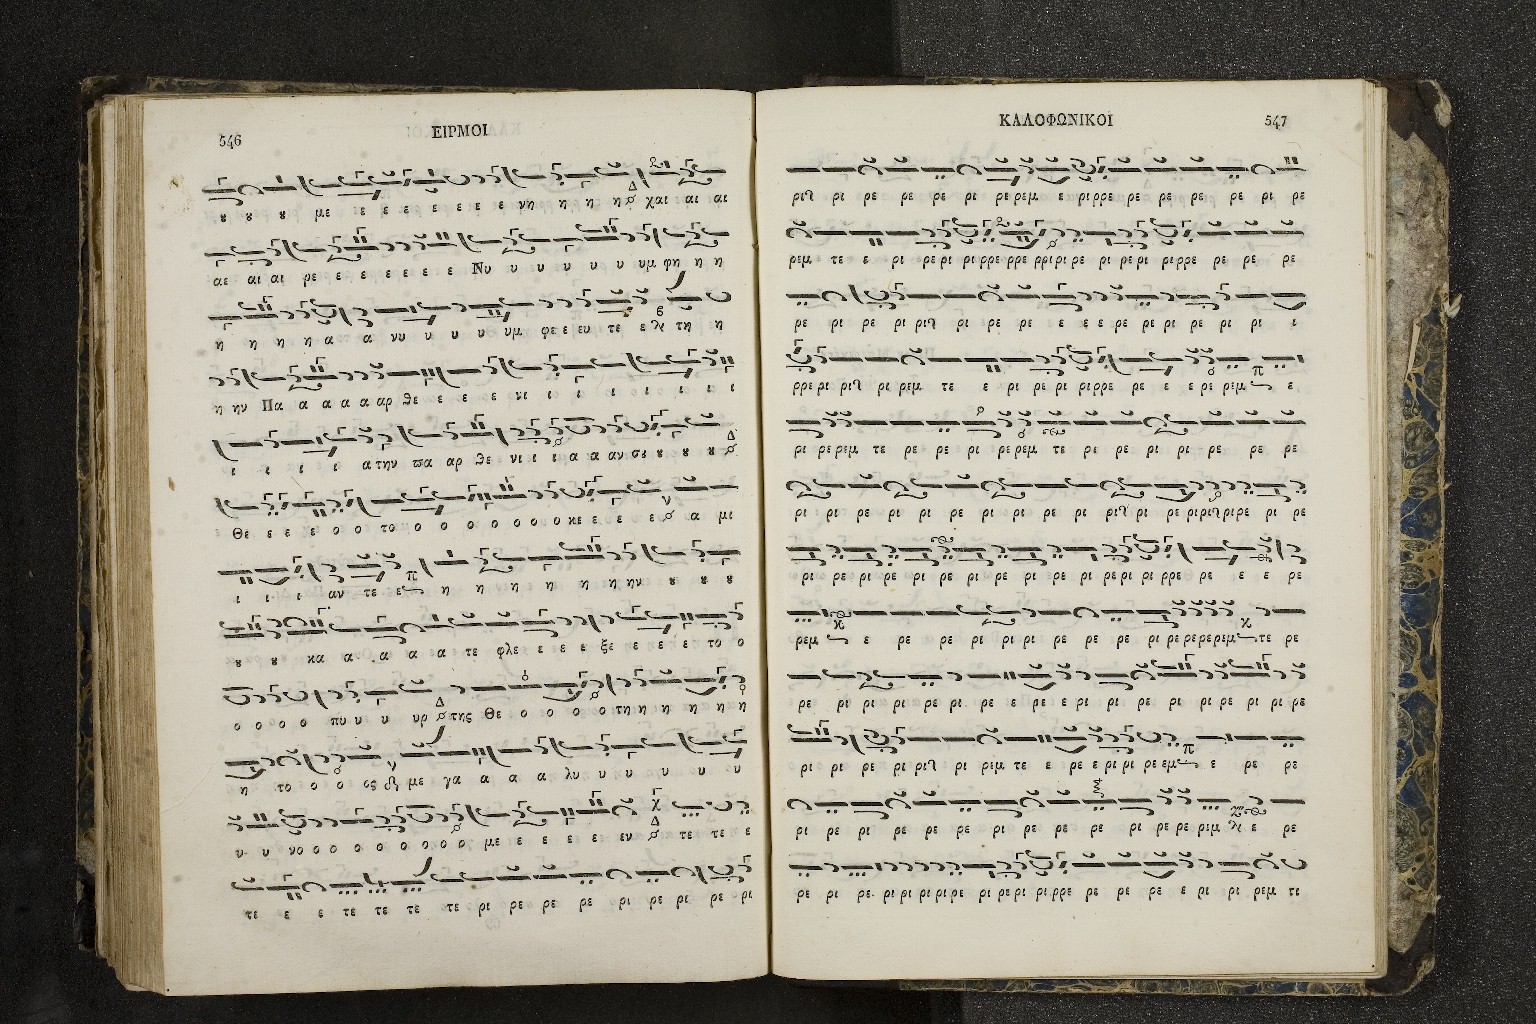 546
ΕΙΡΜΟΙ
ȣ ȣ ȣ με ε ε ε ε ε ε ε νη η η η χαι αι αι
αε αι αι ρε ε ε ε ε ε ε Νυ υ υ υ υ υ υμ φη η η
η η η η α α νυ υ υ υ υμ φε ε ευ τε ε τη η
η ην Πα α α α α αρ θε ε ε ε νι ι ι ι ι ι ι ι
ι ι ι ι α την πα αρ θε νι ι ι α α αν σȣ ȣ ȣ ȣ
Θε ε ε ε ο ο το ο ο ο ο ο ο ο κε ε ε ε α μι
ι ι ι αν τε ε η η η η η η ην ȣ ȣ ȣ
ȣ ȣ κα α α α α τε φλε ε ε ε ξε ε ε ε το ο
ο ο ο ο πυ υ υ υρ της Θε ο ο ο ο τη η η η η η
η το ο ο ος με γα α α α λυ υ υ υ υ υ
υ υ νο ο ο ο ο ο ο ο ο με ε ε ε ε εν τε τε ε
τε ε ε τε τε τε τε ρι ρε ρε ρε ρι ρε ρι ρε ρι
ΚΑΛΟΦΩΝΙΚΟΙ
547
ρι ρι ρε ρε ρε ρι ρε ρεμ ε ρι ρρε ρε ρε ρε ρε ρι ρε
ρεμ τε ε ρι ρε ρι ρι ρρε ρρε ρρι ρι ρε ρι ρε ρι ρι ρρε ρε ρε ρε
ρε ρι ρε ρι ρι ρι ρε ρε ε ε ε ρε ρι ρι ρε ρι ρι ι
ρρε ρι ρι ρι ρεμ τε ε ρι ρε ρι ρι ρρε ρε ε ε ρε ρεμ ε
ρι ρε ρεμ τε ρε ρε ρι ρε ρεμ τε ρι ρε ρι ρι ρε ρε ρε
ρι ρι ρε ρι ρι ρε ρι ρι ρε ρι ρι ρι ρε ρι ρι ρι ρε ρι ρε
ρι ρε ρι ρε ρι ρε ρι ρε ρι ρε ρι ρε ρι ρι ρρε ρε ε ε ρε
ρεμ ε ρε ρε ρι ρι ρι ρε ρε ρε ρι ρε ρε ρε ρεμ τε ρε
ρε ρι ρι ρι ρε ρι ρε ε ρε ε ρι ρε ρι ρε ρι ρε ρι ρε
ρι ρι ρε ρι ρι ρι ρεμ τε ε ρε ε ρι ρι ρε εμ ε ρε ρε
ρι ρε ρι ρε ρε ρε ρι ρε ρε ρε ρι ρε ρε ριμ ε ρε
ρε ρι ρε ρι ρι ρι ρι ρε ρι ρε ρι ρι ρρε ρε ρε ρε ε ρι ρι ρεμ τι